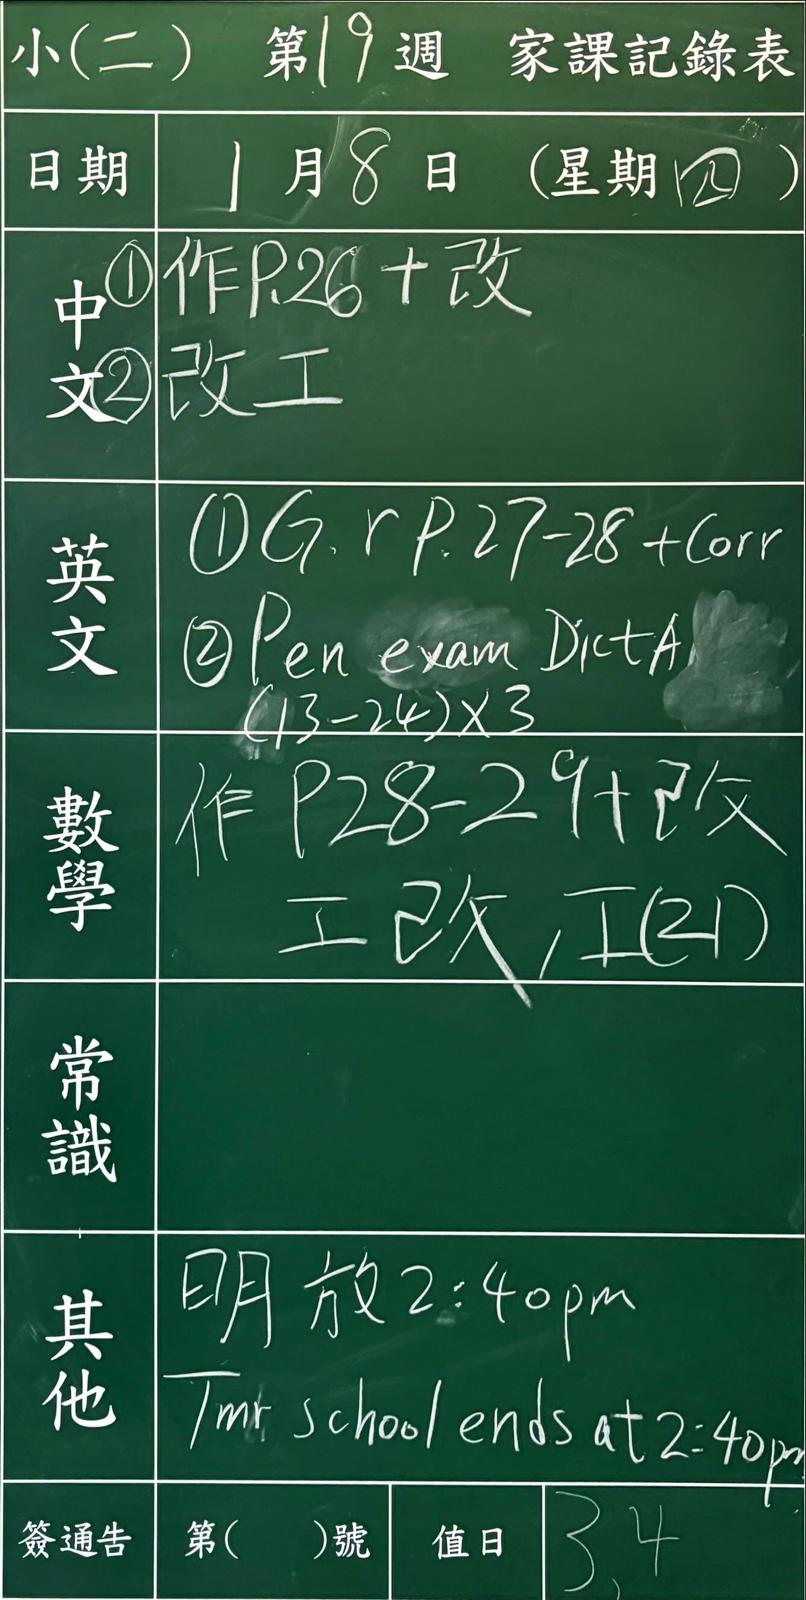 小(二) 第19週 家課記錄表
日期 1月8日 (星期四)
中文 ①作P.26+改
②改工
英文 ①G.r P.27-28+Corr
②Pen exam Dict A
(13-24)×3
數學 作P28-29+改
工改,工(21)
常識
其他 明放2:40pm
Tmr school ends at 2:40pm
簽通告 第( )號 值日 3,4